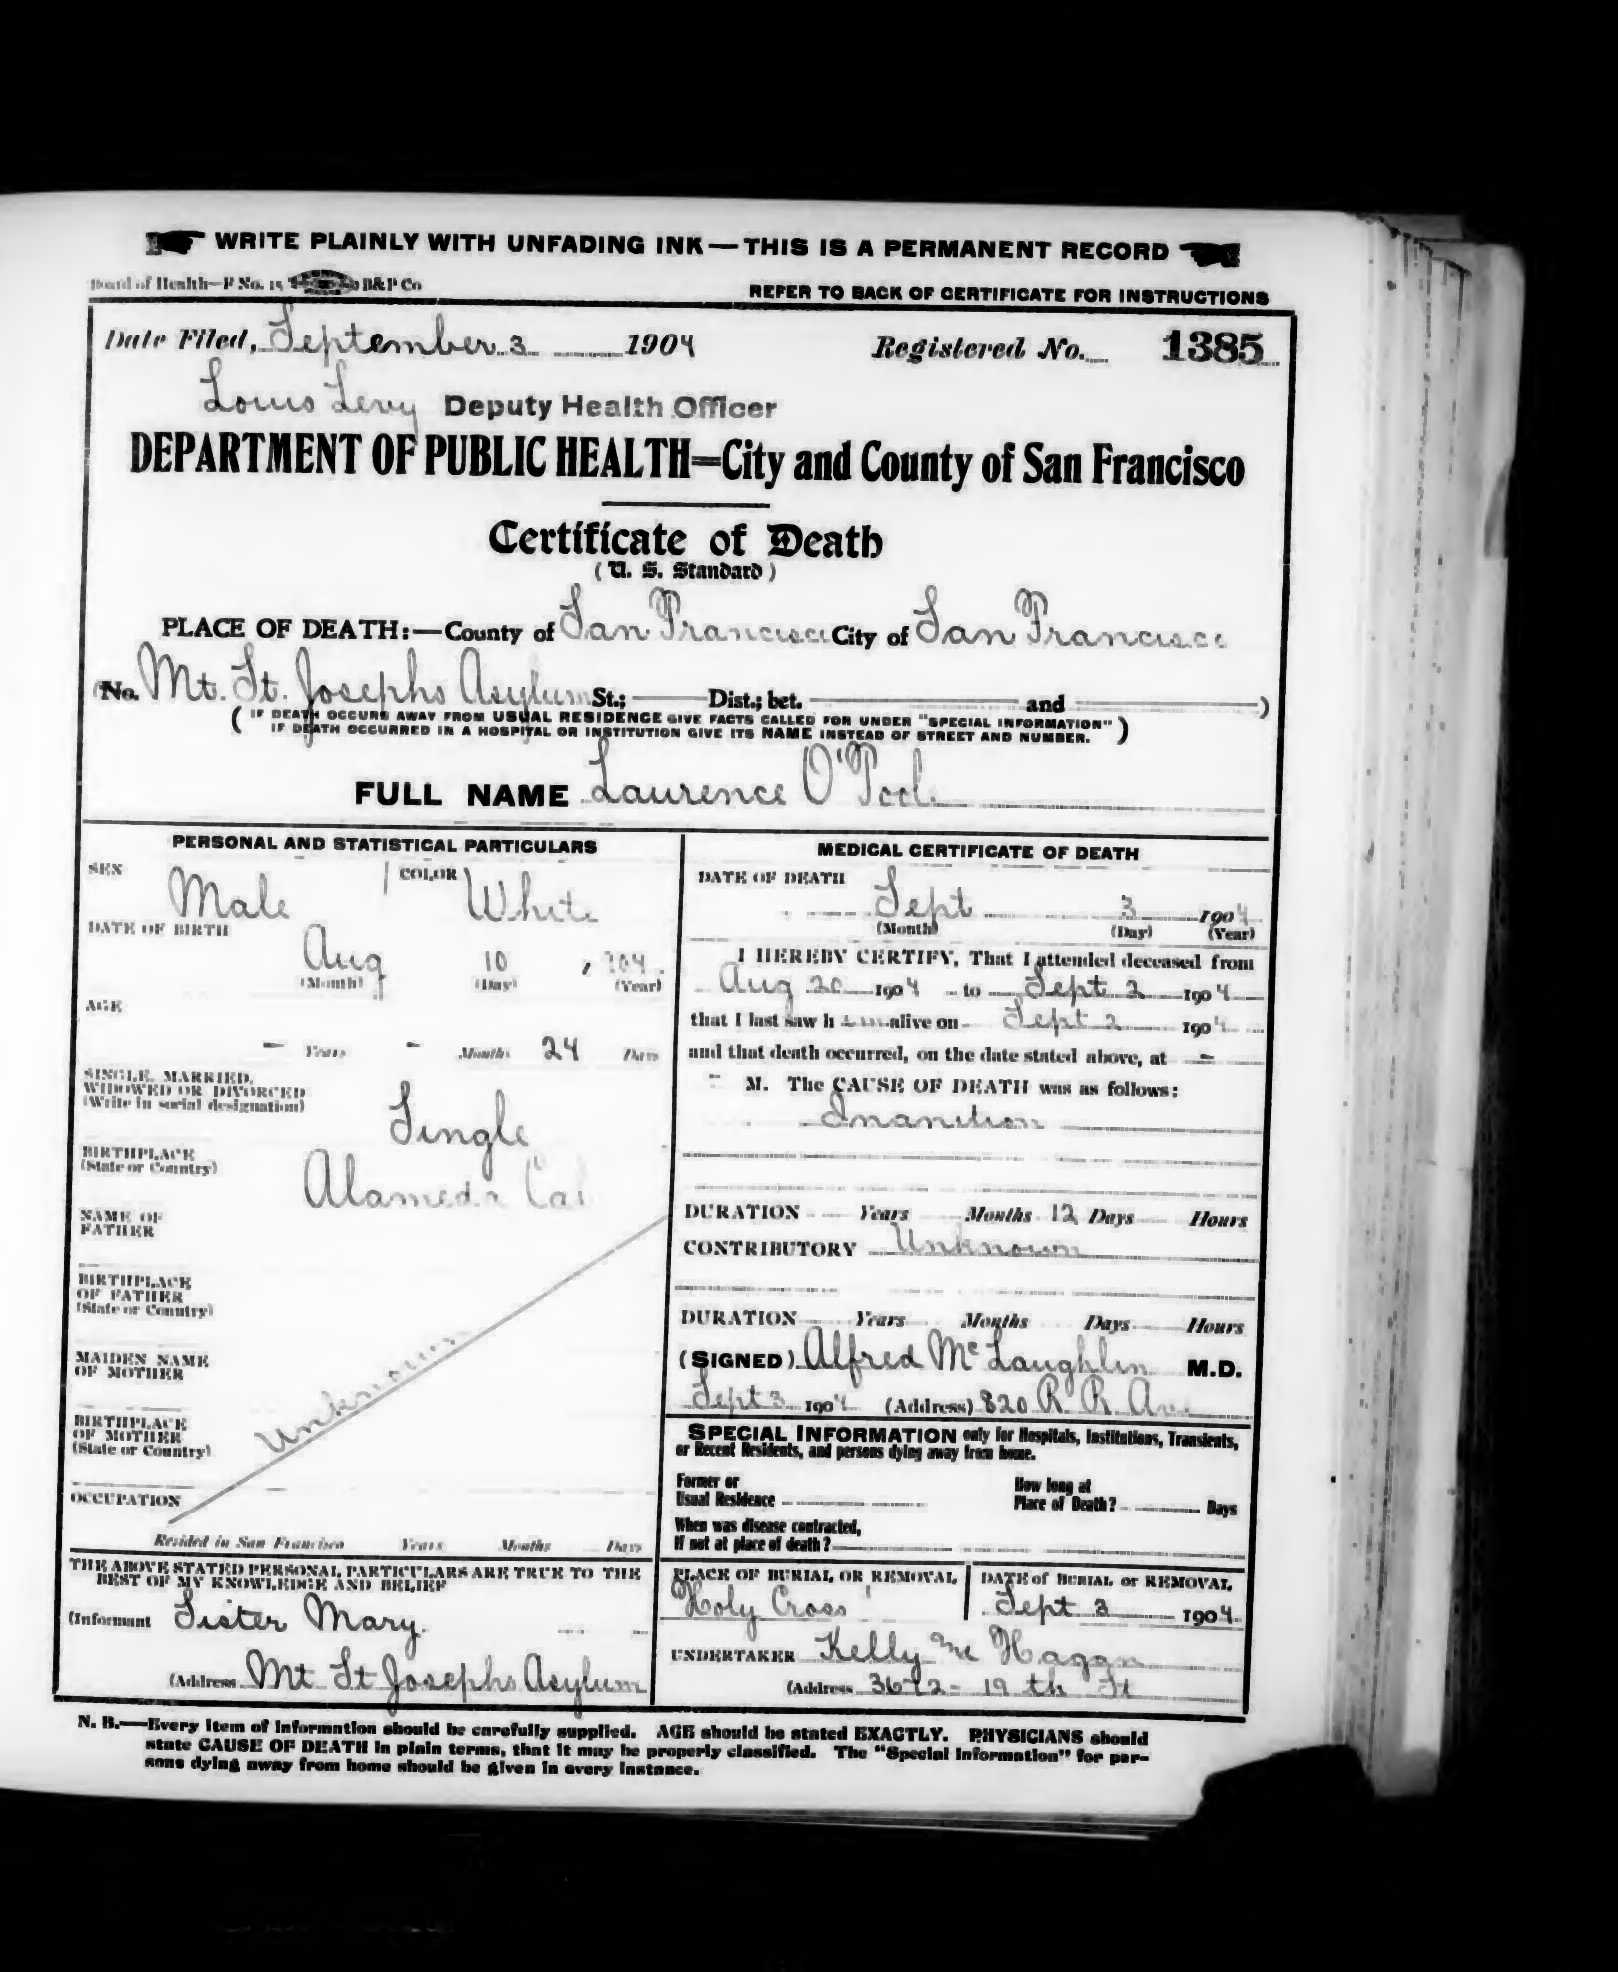 WRITE PLAINLY WITH UNFADING INK—THIS IS A PERMANENT RECORD
Board of Health—F No. 15 B&P Co
REFER TO BACK OF CERTIFICATE FOR INSTRUCTIONS
Date Filed, September 3 1904 Registered No. 1385
Louis Levy Deputy Health Officer
DEPARTMENT OF PUBLIC HEALTH=City and County of San Francisco
Certificate of Death
(U. S. Standard)
PLACE OF DEATH:—County of San Francisco City of San Francisco
(No. Mt. St. Josephs Asylum St.; Dist.; bet. and )
( IF DEATH OCCURS AWAY FROM USUAL RESIDENCE GIVE FACTS CALLED FOR UNDER "SPECIAL INFORMATION" )
IF DEATH OCCURRED IN A HOSPITAL OR INSTITUTION GIVE ITS NAME INSTEAD OF STREET AND NUMBER.
FULL NAME Laurence O'Poole
PERSONAL AND STATISTICAL PARTICULARS
SEX Male COLOR White
DATE OF BIRTH
Aug 10, 904
(Month) (Day) (Year)
AGE
- Years - Months 24 Days
SINGLE, MARRIED,
WIDOWED OR DIVORCED
(Write in social designation)
Single
BIRTHPLACE
(State or Country)
Alameda Cal
NAME OF
FATHER
BIRTHPLACE
OF FATHER
(State or Country)
MAIDEN NAME
OF MOTHER
Unknown
BIRTHPLACE
OF MOTHER
(State or Country)
OCCUPATION
Resided in San Francisco Years Months Days
THE ABOVE STATED PERSONAL PARTICULARS ARE TRUE TO THE
BEST OF MY KNOWLEDGE AND BELIEF
(Informant Sister Mary.
(Address Mt St Josephs Asylum
MEDICAL CERTIFICATE OF DEATH
DATE OF DEATH
Sept 3 1904
(Month) (Day) (Year)
I HEREBY CERTIFY, That I attended deceased from
Aug 20 1904 to Sept 2 1904
that I last saw h im alive on Sept 2 1904
and that death occurred, on the date stated above, at -
- M. The CAUSE OF DEATH was as follows:
Inanition
DURATION Years Months 12 Days Hours
CONTRIBUTORY Unknown
DURATION Years Months Days Hours
(SIGNED) Alfred McLaughlin M.D.
Sept 3 1904 (Address) 820 R. R. Ave
SPECIAL INFORMATION only for Hospitals, Institutions, Transients,
or Recent Residents, and persons dying away from home.
Former or
Usual Residence
How long at
Place of Death? Days
When was disease contracted,
If not at place of death?
PLACE OF BURIAL OR REMOVAL
Holy Cross
DATE of BURIAL or REMOVAL
Sept 3 1904
UNDERTAKER Kelly Mc Hagan
(Address 3672- 19 th St
N. B.—Every item of information should be carefully supplied. AGE should be stated EXACTLY. PHYSICIANS should
state CAUSE OF DEATH in plain terms, that it may be properly classified. The "Special Information" for per-
sons dying away from home should be given in every instance.